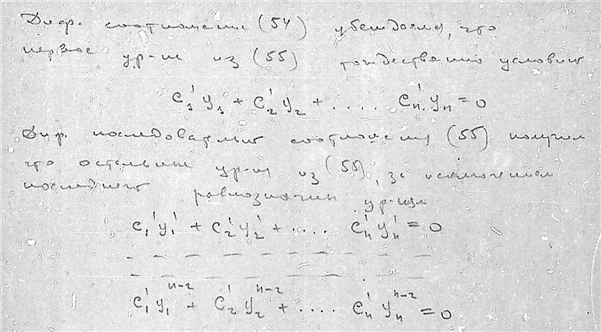 Диф. соотношение (54) убеждаемся, что
первое ур-ие из (55) тождественно условию
C₁' y₁ + C₂' y₂ + .... Cₙ' yₙ = 0
Диф. последовательно соотношения (55) получим
что остальные ур-ия из (55), за исключением
последнего равнозначны ур-иям
C₁' y₁' + C₂' y₂' + .... Cₙ' yₙ' = 0
C₁' y₁ⁿ⁻² + C₂' y₂ⁿ⁻² + .... Cₙ' yₙⁿ⁻² = 0